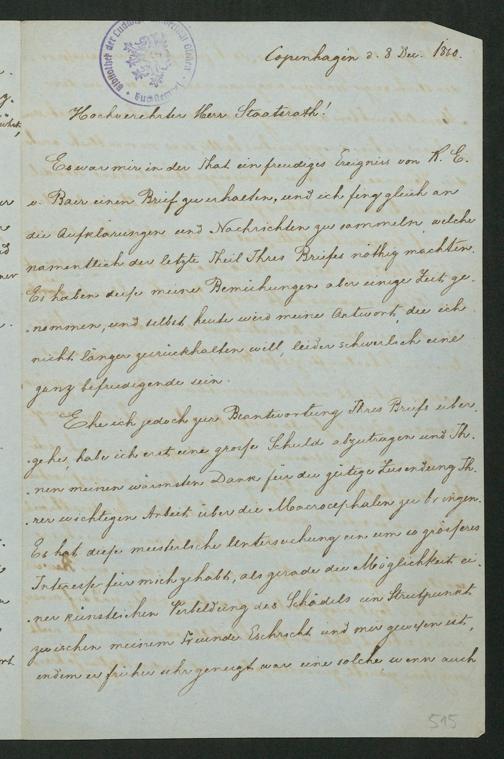 Copenhagen d. 8 Dec. 1860.
Hochverehrter Herr Staatsrath!
Es war mir in der That ein freudiges Ereigniss von K. E.
v. Baer einen Brief zu erhalten, und ich fing gleich an
die Aufklärungen und Nachrichten zu sammeln, welche
namentlich der letzte Theil Ihres Briefes nöthig machten.
Es haben diese meine Bemühungen aber einige Zeit ge-
nommen, und selbst heute wird meine Antwort, die ich
nicht länger zurückhalten will, leider schwerlich eine
ganz befriedigende sein.
Ehe ich jedoch zur Beantwortung Ihres Briefs über-
gehe, habe ich erst eine grosse Schuld abzutragen und Ih-
nen meinen wärmsten Dank für die gütige Zusendung Ih-
rer wichtigen Arbeit über die Macrocephalen zu bringen.
Es hat diese meisterliche Untersuchung ein um so grösseres
Interesse für mich gehabt, als gerade die Möglichkeit ei-
ner künstlichen Verbildung des Schädels ein Streitpunkt
zwischen meinem Freunde Eschricht und mir gewesen ist,
indem er früher sehr geneigt war eine solche wenn auch
515